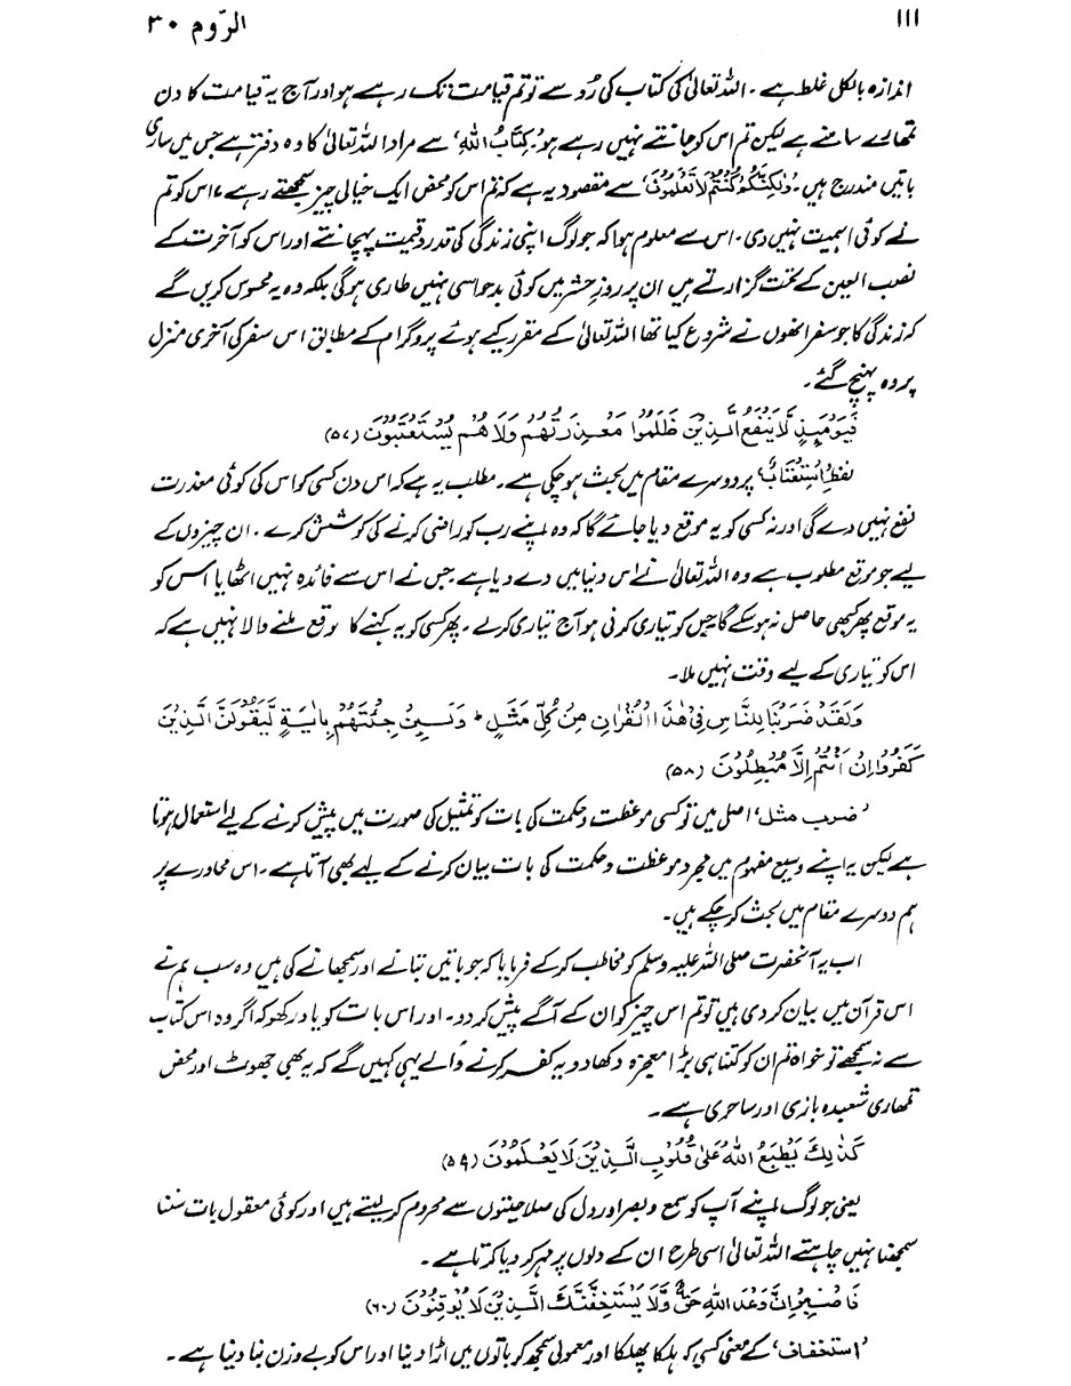 ۱۱۱
الرّوم ۳۰
اندازہ بالکل غلط ہے۔ اللہ تعالیٰ کی کتاب کی رُو سے تو تم قیامت تک رہے ہو اور آج یہ قیامت کا دن
تمھارے سامنے ہے لیکن تم اس کو جانتے نہیں رہے ہو۔ ’کِتَابُ اللہِ‘ سے مراد اللہ تعالیٰ کا وہ دفتر ہے جس میں ساری
باتیں مندرج ہیں۔ ’وَلٰكِنَّكُمْ كُنْتُمْ لَا تَعْلَمُوْنَ‘ سے مقصود یہ ہے کہ تم اس کو محض ایک خیالی چیز سمجھتے رہے، اس کو تم
نے کوئی اہمیت نہیں دی۔ اس سے معلوم ہوا کہ جو لوگ اپنی زندگی کی قدر و قیمت پہچانتے اور اس کو آخرت کے
نصب العین کے تحت گزارتے ہیں ان پر روزِ حشر میں کوئی بدحواسی نہیں طاری ہوگی بلکہ وہ یہ محسوس کریں گے
کہ زندگی کا جو سفر انھوں نے شروع کیا تھا اللہ تعالیٰ کے مقرر کیے ہوئے پروگرام کے مطابق اس سفر کی آخری منزل
پر وہ پہنچ گئے۔
فَيَوْمَئِذٍ لَّا يَنْفَعُ الَّذِيْنَ ظَلَمُوْا مَعْذِرَتُهُمْ وَلَا هُمْ يُسْتَعْتَبُوْنَ (۵۷)
لفظ ’اِسْتِعْتَابٌ‘ پر دوسرے مقام میں بحث ہو چکی ہے۔ مطلب یہ ہے کہ اس دن کسی کو اس کی کوئی معذرت
نفع نہیں دے گی اور نہ کسی کو یہ موقع دیا جائے گا کہ وہ اپنے رب کو راضی کرنے کی کوشش کرے۔ ان چیزوں کے
لیے جو موقع مطلوب ہے وہ اللہ تعالیٰ نے اس دنیا میں دے دیا ہے جس نے اس سے فائدہ نہیں اٹھایا اس کو
یہ موقع پھر کبھی حاصل نہ ہو سکے گا جس کو تیاری کرنی ہو آج تیاری کرلے۔ پھر کسی کو یہ کہنے کا موقع ملنے والا نہیں ہے کہ
اس کو تیاری کے لیے وقت نہیں ملا۔
وَلَقَدْ ضَرَبْنَا لِلنَّاسِ فِيْ هٰذَا الْقُرْاٰنِ مِنْ كُلِّ مَثَلٍ ؕ وَلَئِنْ جِئْتَهُمْ بِاٰيَةٍ لَّيَقُوْلَنَّ الَّذِيْنَ
كَفَرُوْا اِنْ اَنْتُمْ اِلَّا مُبْطِلُوْنَ (۵۸)
’ضرب مثل‘ اصل میں تو کسی موعظت و حکمت کی بات کو تمثیل کی صورت میں پیش کرنے کے لیے استعمال ہوتا
ہے لیکن یہ اپنے وسیع مفہوم میں مجرد موعظت و حکمت کی بات بیان کرنے کے لیے بھی آتا ہے۔ اس محاورے پر
ہم دوسرے مقام میں بحث کر چکے ہیں۔
اب یہ آنحضرت صلی اللہ علیہ وسلم کو مخاطب کرکے فرمایا کہ جو باتیں بتانے اور سمجھانے کی ہیں وہ سب ہم نے
اس قرآن میں بیان کر دی ہیں تو تم اس چیز کو ان کے آگے پیش کر دو۔ اور اس بات کو یاد رکھو کہ اگر وہ اس کتاب
سے نہ سمجھے تو خواہ تم ان کو کتنا ہی بڑا معجزہ دکھا دو یہ کفر کرنے والے یہی کہیں گے کہ یہ بھی جھوٹ اور محض
تمھاری شعبدہ بازی اور ساحری ہے۔
كَذٰلِكَ يَطْبَعُ اللّٰهُ عَلٰى قُلُوْبِ الَّذِيْنَ لَا يَعْلَمُوْنَ (۵۹)
یعنی جو لوگ اپنے آپ کو سمع و بصر اور دل کی صلاحیتوں سے محروم کر لیتے ہیں اور کوئی معقول بات سننا
سمجھنا نہیں چاہتے اللہ تعالیٰ اسی طرح ان کے دلوں پر مہر کر دیا کرتا ہے۔
فَاصْبِرْ اِنَّ وَعْدَ اللّٰهِ حَقٌّ وَّلَا يَسْتَخِفَّنَّكَ الَّذِيْنَ لَا يُوْقِنُوْنَ (۶۰)
’استخفاف‘ کے معنی کسی کو ہلکا پھلکا اور معمولی سمجھ کر باتوں میں اڑا دینا اور اس کو بے وزن بنا دینا ہے۔